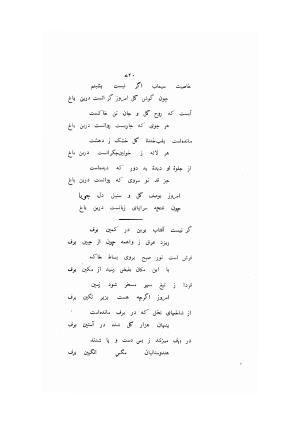 ۵۴۰
خاصیت سیماب اگر نیست یشبنم
چون گوش گل امروز گر انست درین باغ
آبست که روح گل و جان تن خاکست
هر جوی که جاریست روانست درین باغ
مانده‌است بلب خندهٔ گل خشک ز دهشت
هر لاله ز خونین‌جگرانست درین باغ
از جلوهٔ او دیدهٔ بد دور که دیده‌است
جز قد تو سروی که روانست درین باغ
امروز یوسف گل و سنبل دل جویا
چون غنچه سراپای زبانست درین باغ
گر نیست آفتاب برین در کمین برف
ریزد عرق ز واهمه چون از جبین برف
فرش است نور صبح بروی بساط خاک
با این مکان بفیض رسید از مکین برف
فردا ز تیغ سیر مسخر شود زمین
امروز اگرچه هست بزیر نگین برف
از شاخهای نخل که در برف مانده‌است
پنهان هزار گل شده در آستین برف
در برف میزند ز پس دست و پا شدند
هندوستانیان مگس انگبین برف